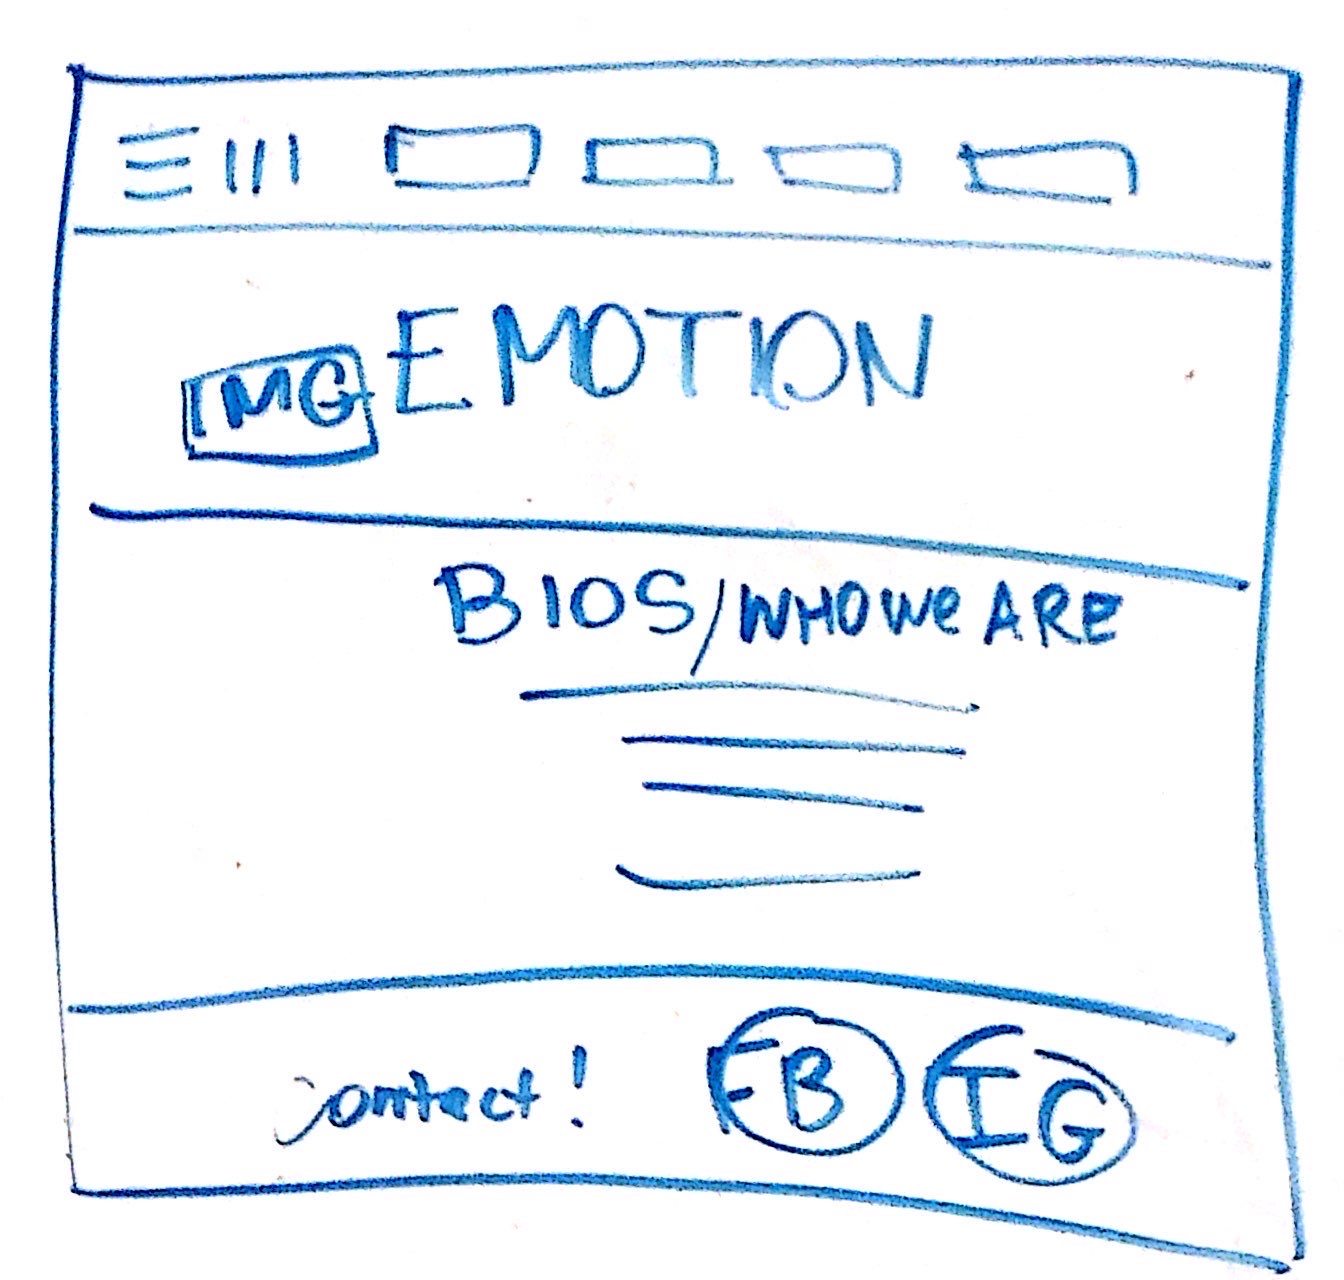 IMG EMOTION
BIOS/WHO WE ARE
contact! FB IG